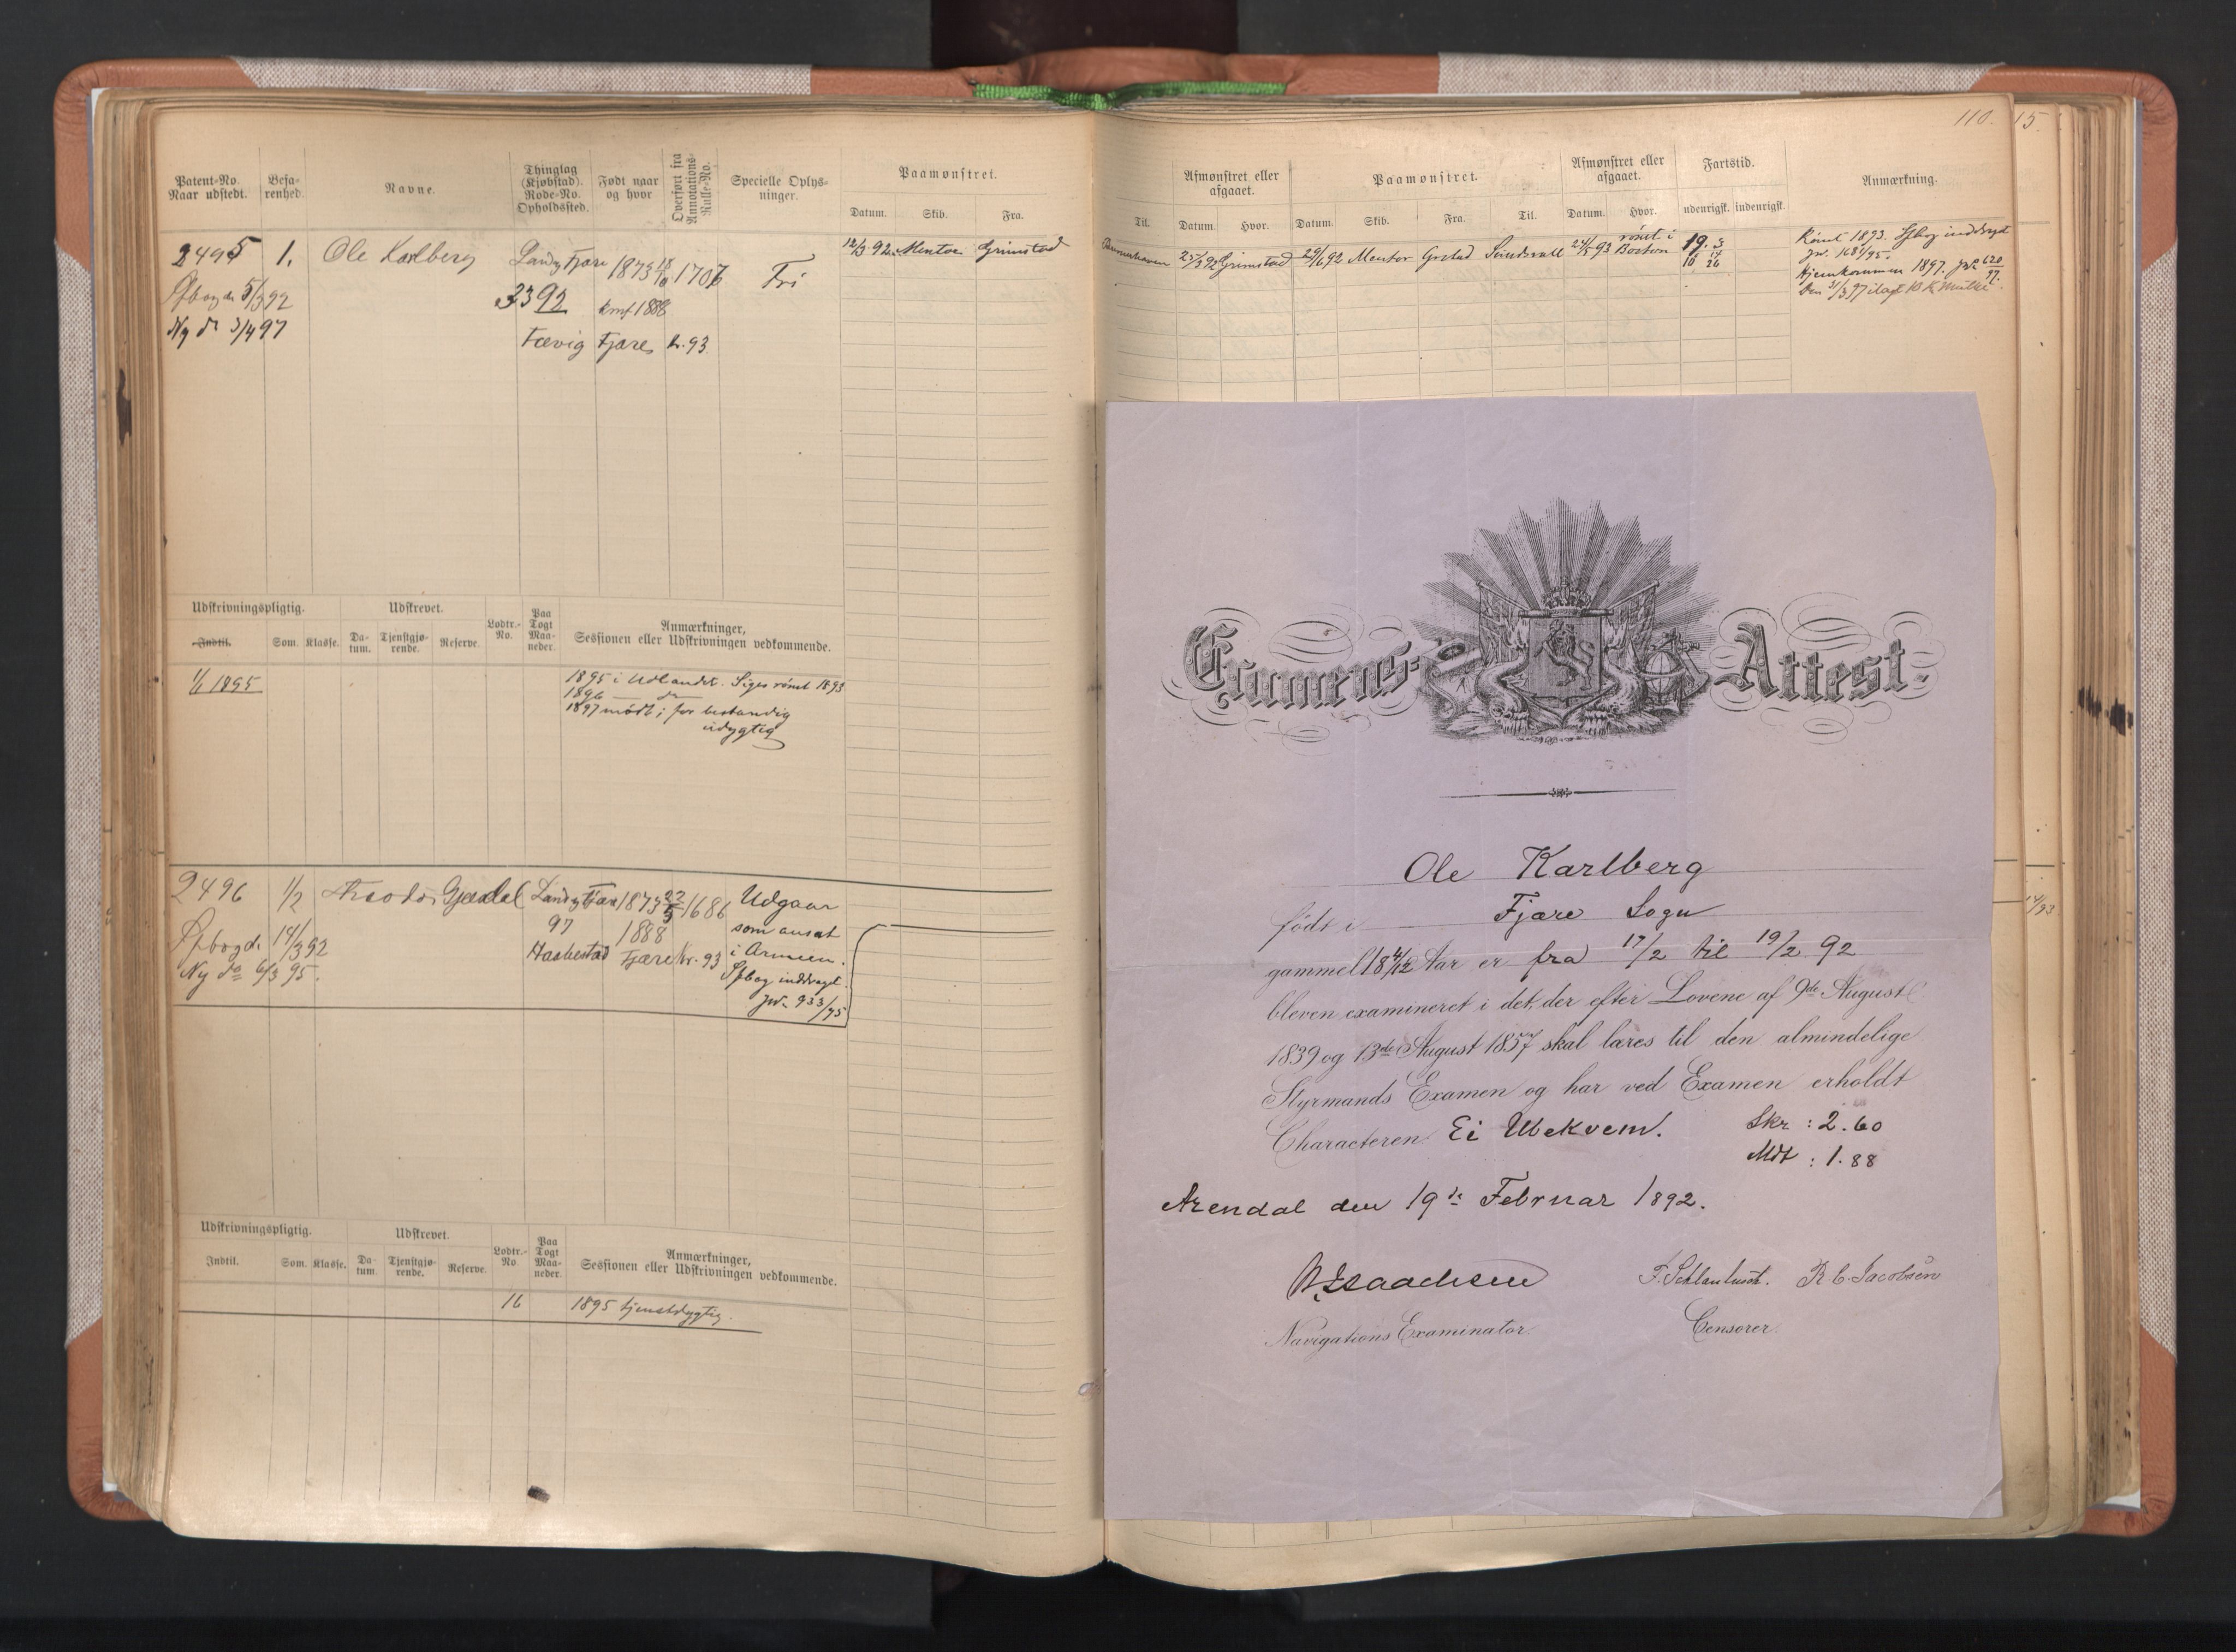 110.
15.
Patent-No. Naar udstedt.
Befa-renhed.
Navne.
Thinglag (Kjøbstad). Rode-No. Opholdssted.
Født naar og hvor
Overført fra Annotations-Rulle-No.
Specielle Oplys-ninger.
Paamønstret.
Datum. Skib. Fra.
Til.
Afmønstret eller afgaaet.
Datum. Hvor.
Paamønstret.
Datum. Skib. Fra. Til.
Afmønstret eller afgaaet.
Datum. Hvor.
Fartstid.
udenrigsk. indenrigsk.
Anmærkning.
2495 1. Ole Karlberg Landv Fjære 1873 18/10 1707 Fri 12/3 92 Mentor Grimstad
25/5 92 Grimstad 29/6 92 Mentor Grstad Sundsvall 24/5 93 rømt i Boston
Rømt 1893. Sfbog inddraget
jvn. 1681/95.
Hjemkommen 1897. jvn 620/97.
Den 31/3 97 ilagt 10 K Mulkt.
Sfbog do 5/3 92 3392 konf 1888
Ny do 3/4 97 Fævig Fjære Kr. 93
Udskrivningspligtig.
Indtil. Som. Klasse.
Udskrevet.
Da-tum. Tjenstgjø-rende. Reserve.
Lodtr.-No.
Paa Togt Maa-neder.
Anmærkninger, Sessionen eller Udskrivningen vedkommende.
1/1 1895
1895 i Udlandet. Siges rømt 1893
1896 — do —
1897 mødt; for bestandig
udygtig
2496 1/2 Theodor Gjeddal Landv Fjære 1873 22/5 1686 Udgaar
97 1888 som ansat
Sfbog do 14/3 92 Haabestad Fjære Kr. 93 i Armeen.
Ny do 6/3 95. Sfbog inddraget.
jvn. 933/95
14/93
Udskrivningspligtig.
Indtil. Som. Klasse.
Udskrevet.
Da-tum. Tjenstgjø-rende. Reserve.
Lodtr.-No
Paa Togt Maa-neder.
Anmærkninger, Sessionen eller Udskrivningen vedkommende.
16 1895 tjenstdygtig.
Examens-Attest.
Ole Karlberg
født i Fjære Sogn
gammel 18 4/12 Aar er fra 17/2 til 19/2 92
bleven examineret i det, der efter Lovene af 9de August
1839 og 13de August 1857 skal læres til den almindelige
Styrmands Examen og har ved Examen erholdt
Characteren Ei Ubekvem. Skr : 2.60
Mdt : 1.88
Arendal den 19de Februar 1892.
N. Isaachsen R C. Jacobsen
Navigations Examinator. Censorer.